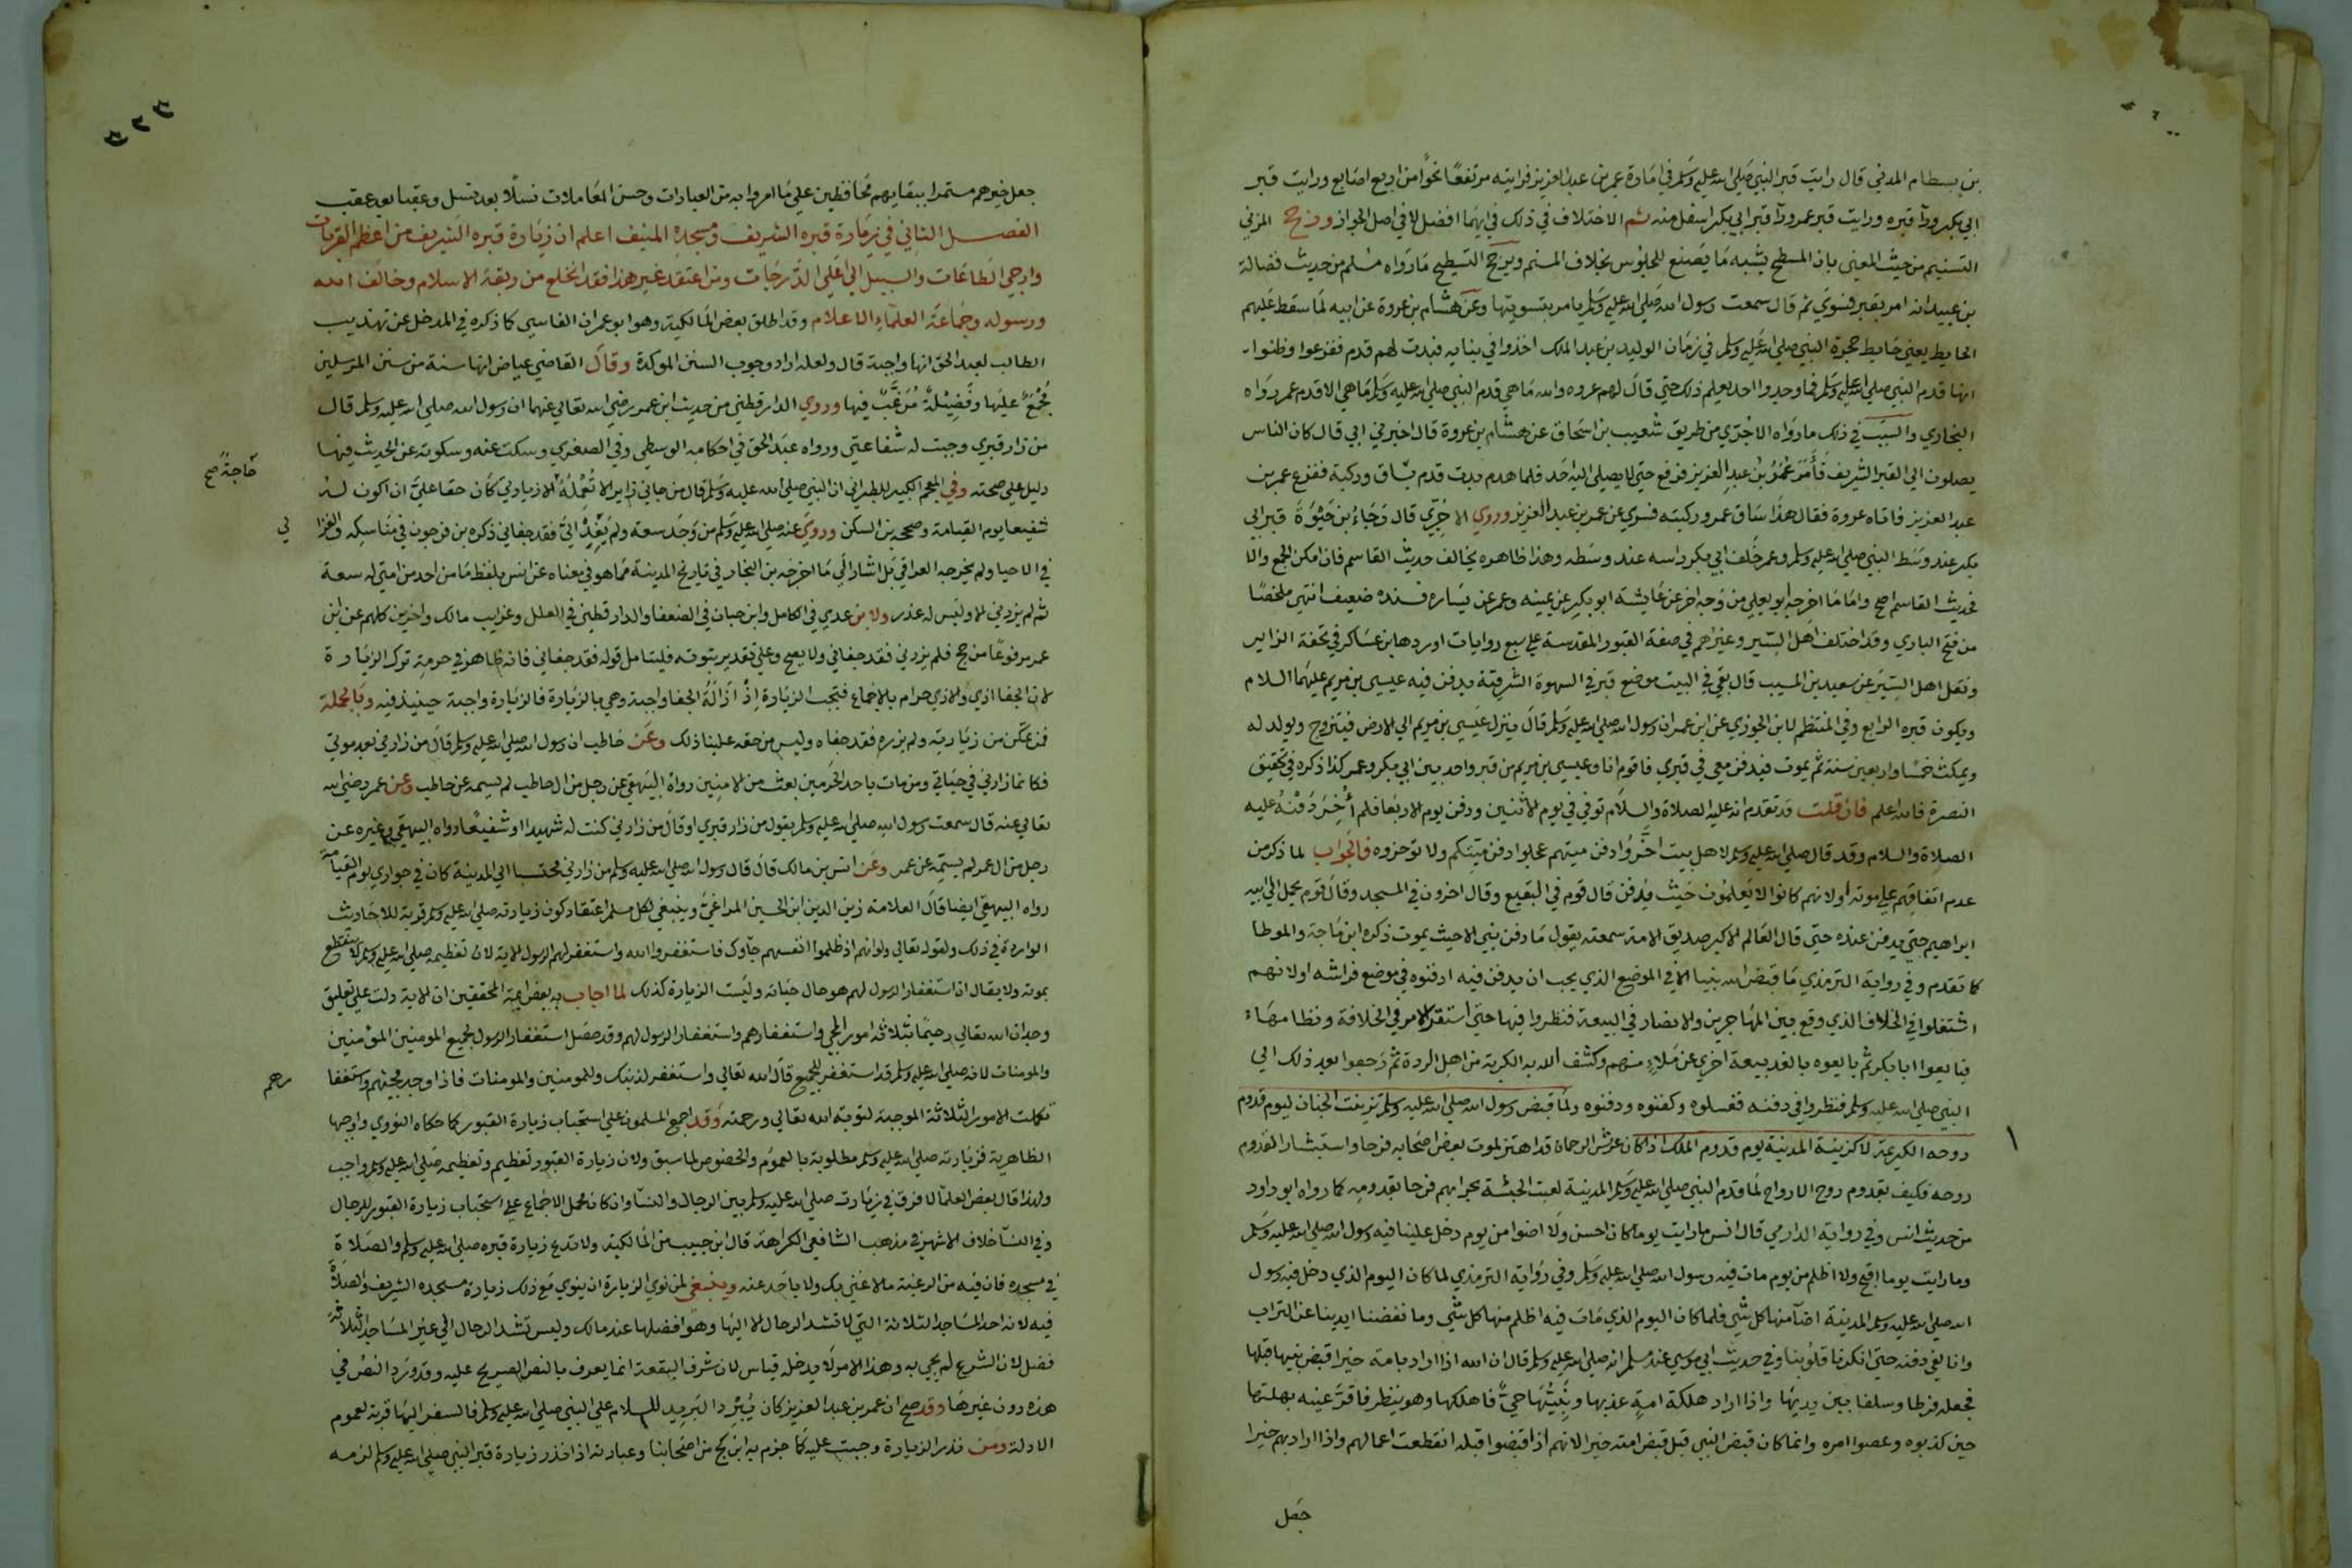 بن بسطام المدني قال رايت قبر النبي صلى الله عليه وسلم في امارة عمر بن عبد العزيز فرايته مرتفعًا نحوًا من اربع اصابع ورايت قبر
ابي بكر ورآ قبره ورايت قبر عمر ورآ قبر ابي بكر اسفل منه ثم الاختلاف في ذلك في ايهما افضل لا في اصل الجواز ورجح المزني
التسنيم من حيث المعنى بان المسطح يشبه ما يصنع للجلوس بخلاف المسنم ويرجح التسطيح ما رواه مسلم من حديث فضالة
بن عبيد انه امر بقبر فسوي ثم قال سمعت رسول الله صلى الله عليه وسلم يامر بتسويتها وعن هشام بن عروة عن ابيه لما سقط عليهم
الحايط يعني حايط حجرة النبي صلى الله عليه وسلم في زمان الوليد بن عبد الملك اخذوا في بنايه فبدت لهم قدم ففزعوا وظنوا
انها قدم النبي صلى الله عليه وسلم فما وجدوا احد يعلم ذلك حتى قال لهم عروه والله ما هي قدم النبي صلى الله عليه وسلم ما هي الا قدم عمر رواه
البخاري والسبب في ذلك ما رواه الاجري من طريق شعيب بن اسحاق عن هشام بن عروة قال اخبرني ابي قال كان الناس
يصلون الى القبر الشريف فأمر عمر بن عبد العزيز فرفع حتى لا يصلي اليه احد فلما هدم بدت قدم بساق وركبة ففزع عمر بن
عبد العزيز فاتاه عروة فقال هذا ساق عمر وركبته فسري عن عمر بن عبد العزيز وروي الاجري قال رجاء بن حيوة قبر ابي
بكر عند وسط النبي صلى الله عليه وسلم وعمر خلف ابي بكر راسه عند وسطه وهذا ظاهره يخالف حديث القاسم فان امكن الجمع والا
فحديث القاسم اصح واما ما اخرجه ابو يعلى من وجه اخر عن عايشة ابو بكر عن يمينه وعمر عن يساره فسنده ضعيف انتهى ملخصًا
من فتح الباري وقد اختلف اهل السير وغيرهم في صفة القبور المقدسة على سبع روايات اوردها بن عساكر في تحفة الزاير
ونقل اهل السير عن سعيد بن المسيب قال بقي في البيت موضع قبر في السهوة الشرقية يدفن فيه عيسى بن مريم عليهما السلام
ويكون قبره الرابع وفي المنتظم لابن الجوزي عن ابن عمر ان رسول الله صلى الله عليه وسلم قال ينزل عيسى بن مريم الى الارض فيتزوج ويولد له
ويمكث خمسا واربعين سنة ثم يموت فيدفن معي في قبري فاقوم انا وعيسى بن مريم من قبر واحد بين ابي بكر وعمر كذا ذكره في تحقيق
النصرة فالله اعلم فان قلت قد تقدم انه عليه الصلاة والسلام توفي في يوم الاثنين ودفن يوم الاربعا فلم أُخِّرَ دَفْنُهُ عليه
الصلاة والسلام وقد قال صلى الله عليه وسلم لاهل بيت اخروا دفن ميتهم عجلوا دفن ميتكم ولا توخروه فالجواب لما ذكر من
عدم اتفاقهم على موته أو لانهم كانوا لا يعلمون حيث يدفن قال قوم في البقيع وقال اخرون في المسجد وقال قوم يحمل الى ابيه
ابراهيم حتى يدفن عنده حتى قال العالم الاكبر صديق الامة سمعته يقول ما دفن نبي الا حيث يموت ذكره ابن ماجة والموطا
كما تقدم وفي رواية الترمذي ما قبض الله نبيا الا في الموضع الذي يحب ان يدفن فيه ادفنوه في موضع فراشه او لانهم
اشتغلوا في الخلاف الذي وقع بين المهاجرين والانصار في البيعة فنظروا فيها حتى استقر الامر في الخلافة ونظامها
فبايعوا ابا بكر ثم بايعوه بالغد بيعة اخرى عن ملإ منهم وكشف الله به الكربة من اهل الردة ثم رجعوا بعد ذلك الى
النبي صلى الله عليه وسلم فنظروا في دفنه فغسلوه وكفنوه ودفنوه ولما قبض رسول الله صلى الله عليه وسلم تزينت الجنان ليوم قدوم
روحه الكريمة لا كزينة المدينة يوم قدوم الملك اذا كان عرش الرحمان قد اهتز لموت بعض اصحابه فرحا واستبشارا لقدوم
روحه فكيف بقدوم روح الارواح لما قدم النبي صلى الله عليه وسلم المدينة لعبت الحبشة بحرابهم فرحا بقدومه كما رواه ابو داود
من حديث انس وفي رواية الدارمي قال انس ما رايت يوما كان احسن ولا اضوا من يوم دخل علينا فيه رسول الله صلى الله عليه وسلم
وما رايت يوما اقبح ولا اظلم من يوم مات فيه رسول الله صلى الله عليه وسلم وفي رواية الترمذي لما كان اليوم الذي دخل فيه رسول
الله صلى الله عليه وسلم المدينة اضآ منها كل شي فلما كان اليوم الذي مات فيه اظلم منها كل شي وما نفضنا ايدينا عن التراب
وانا لفي دفنه حتى انكرنا قلوبنا وفي حديث ابي موسى عند مسلم انه صلى الله عليه وسلم قال ان الله اذا اراد بامة خيرا قبض نبيها قبلها
فجعله فرطا وسلفا بين يديها واذا اراد هلكة امة عذبها ونبيها حي فاهلكها وهو ينظر فاقر عينه بهلكتها
حين كذبوه وعصوا امره وانما كان قبض النبي قبل قبض امته خيرا لانهم اذا قبضوا قبله انقطعت اعمالهم واذا اراد بهم خيرا
جعل
جعل خيرهم مستمرا ببقايهم محافظين على ما امروا به من العبادات وحسن المعاملات نسلًا بعد نسل وعقبا بعد عقب
الفصل الثاني في زيارة قبره الشريف ومسجده المنيف اعلم ان زيارة قبره الشريف من اعظم القربات
وارجى الطاعات والسبيل الى اعلى الدرجات ومن اعتقد غير هذا فقد انخلع من ربقة الاسلام وخالف الله
ورسوله وجماعة العلماء الاعلام وقد اطلق بعض المالكية وهو ابو عمران الفاسي كما ذكره في المدخل عن تهذيب
الطالب لعبد الحق انها واجبة قال ولعله اراد وجوب السنن الموكدة وقال القاضي عياض انها سنة من سنن المرسلين
مُجْمَعٌ عليها وفَضِيْلَةٌ مُرَغَّبٌ فيها وروي الدارقطني من حديث ابن عمر رضي الله تعالى عنهما ان رسول الله صلى الله عليه وسلم قال
من زار قبري وجبت له شفاعتي ورواه عبد الحق في احكامه الوسطى وفي الصغرى وسكت عنه وسكوته عن الحديث فيها
دليل على صحته وفي المعجم الكبير للطبراني ان النبي صلى الله عليه وسلم قال من جاني زايرا لا تُعْمِلُهُ الا زيارتي كان حقا علي ان اكون له
حَاجةً صح
شفيعا يوم القيامة وصححه بن السكن وروي عنه صلى الله عليه وسلم من وجد سعة ولم يَفِدْ إليَّ فقد جفاني ذكره بن فرحون في مناسكه والغزا
لي
في الاحيا ولم يخرجه العراقي بل اشار الى ما اخرجه بن النجار في تاريخ المدينة مما هو في معناه عن انس بلفظ ما من احد من امتي له سعة
ثم لم يزرني الا وليس له عذر ولابن عدي في الكامل وابن حبان في الضعفا والدارقطني في العلل وغرايب مالك واخرين كلهم عن ابن
عمر مرفوعًا من حج فلم يزرني فقد جفاني ولا يصح وعلى تقدير ثبوته فليتامل قوله فقد جفاني فانه ظاهر في حرمة ترك الزيارة
لان الجفا اذى والاذى حرام بالاجماع فتجب الزيارة اذ ازالة الجفا واجبة وهي بالزيارة فالزيارة واجبة حينيذ فيه وبالجملة
فمن تمكن من زيارته ولم يزره فقد جفاه وليس من حقه علينا ذلك وعن حاطب ان رسول الله صلى الله عليه وسلم قال من زارني بعد موتي
فكانما زارني في حياتي ومن مات باحد الحرمين بعث من الامنين رواه البيهقي عن رجل من ال حاطب لم يسمه عن حاطب وعن عمر رضي الله
تعالى عنه قال سمعت رسول الله صلى الله عليه وسلم يقول من زار قبري او قال من زارني كنت له شهيدا او شفيعًا رواه البيهقي وغيره عن
رجل من ال عمر لم يسمه عن عمر وعن انس بن مالك قال قال رسول الله صلى الله عليه وسلم من زارني محتسبا الى المدينة كان في جواري يوم القيامة
رواه البيهقي ايضا قال العلامة زين الدين ابن الحسين المراغي وينبغي لكل مسلم اعتقاد كون زيارته صلى الله عليه وسلم قربة للاحاديث
الواردة في ذلك ولقوله تعالى ولو انهم اذ ظلموا انفسهم جآوك فاستغفروا الله واستغفر لهم الرسول الاية لان تعظيمه صلى الله عليه وسلم لا ينقطع
بموته ولا يقال ان استغفار الرسول لهم هو حال حياته وليست الزيارة كذلك لما اجاب به بعض ايمة المحققين ان الاية دلت على تعليق
وجدان الله تعالى رحيمًا بثلاثة امور المجي واستغفارهم واستغفار الرسول لهم وقد حصل استغفار الرسول لجميع المومنين المؤمنين
والمومنات لانه صلى الله عليه وسلم قد استغفر للجميع قال الله تعالى واستغفر لذنبك وللمومنين والمومنات فاذا وجد مجيئهم واستغفا
رهم
تكملت الامور الثلاثة الموجبة لتوبة الله تعالى ورحمته وقد اجمع المسلمون على استحباب زيارة القبور كما حكاه النووي واوجبها
الظاهرية فزيارته صلى الله عليه وسلم مطلوبة بالعموم والخصوص لما سبق ولان زيارة القبور تعظيم وتعظيمه صلى الله عليه وسلم واجب
ولهذا قال بعض العلمآ لا فرق في زيارته صلى الله عليه وسلم بين الرجال والنسآ وان كان محل الاجماع على استحباب زيارة القبور للرجال
وفي النسآ خلاف الاشهر في مذهب الشافعي الكراهة قال ابن حبيب من المالكية ولا تدع زيارة قبره صلى الله عليه وسلم والصلاة
في مسجده فان فيه من الرغبة ما لا غنى بك ولا باحد عنه وينبغي لمن نوى الزيارة ان ينوي مع ذلك زيارة مسجده الشريف والصلاة
فيه لانه احد المساجد الثلاثة التي لا تشد الرحال الا اليها وهو افضلها عند مالك وليس تشد الرحال الى غير المساجد الثلاثة
فضل لان الشرع لم يجي به وهذا الامر لا يدخله قياس لان شرف البقعة انما يعرف بالنص الصريح عليه وقد ورد النص في
هذه دون غيرها وقد صح ان عمر بن عبد العزيز كان يُبْرِد البريد للسلام على النبي صلى الله عليه وسلم فالسفر اليها قربة لعموم
الادلة ومن نذر الزيارة وجبت عليه كما جزم به ابن كج من اصحابنا وعبارته اذا نذر زيارة قبر النبي صلى الله عليه وسلم لزمه